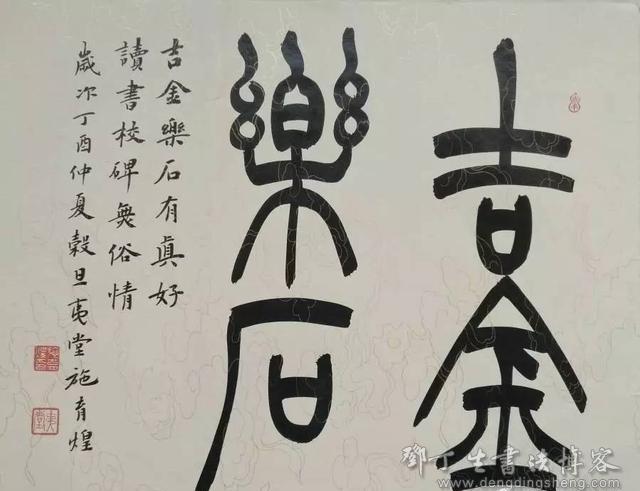 吉金
樂石
吉金樂石有真好
讀書校碑無俗情
歲次丁酉仲夏穀旦夷堂施育煌
鄧丁生書法博客
www.dengdingsheng.com